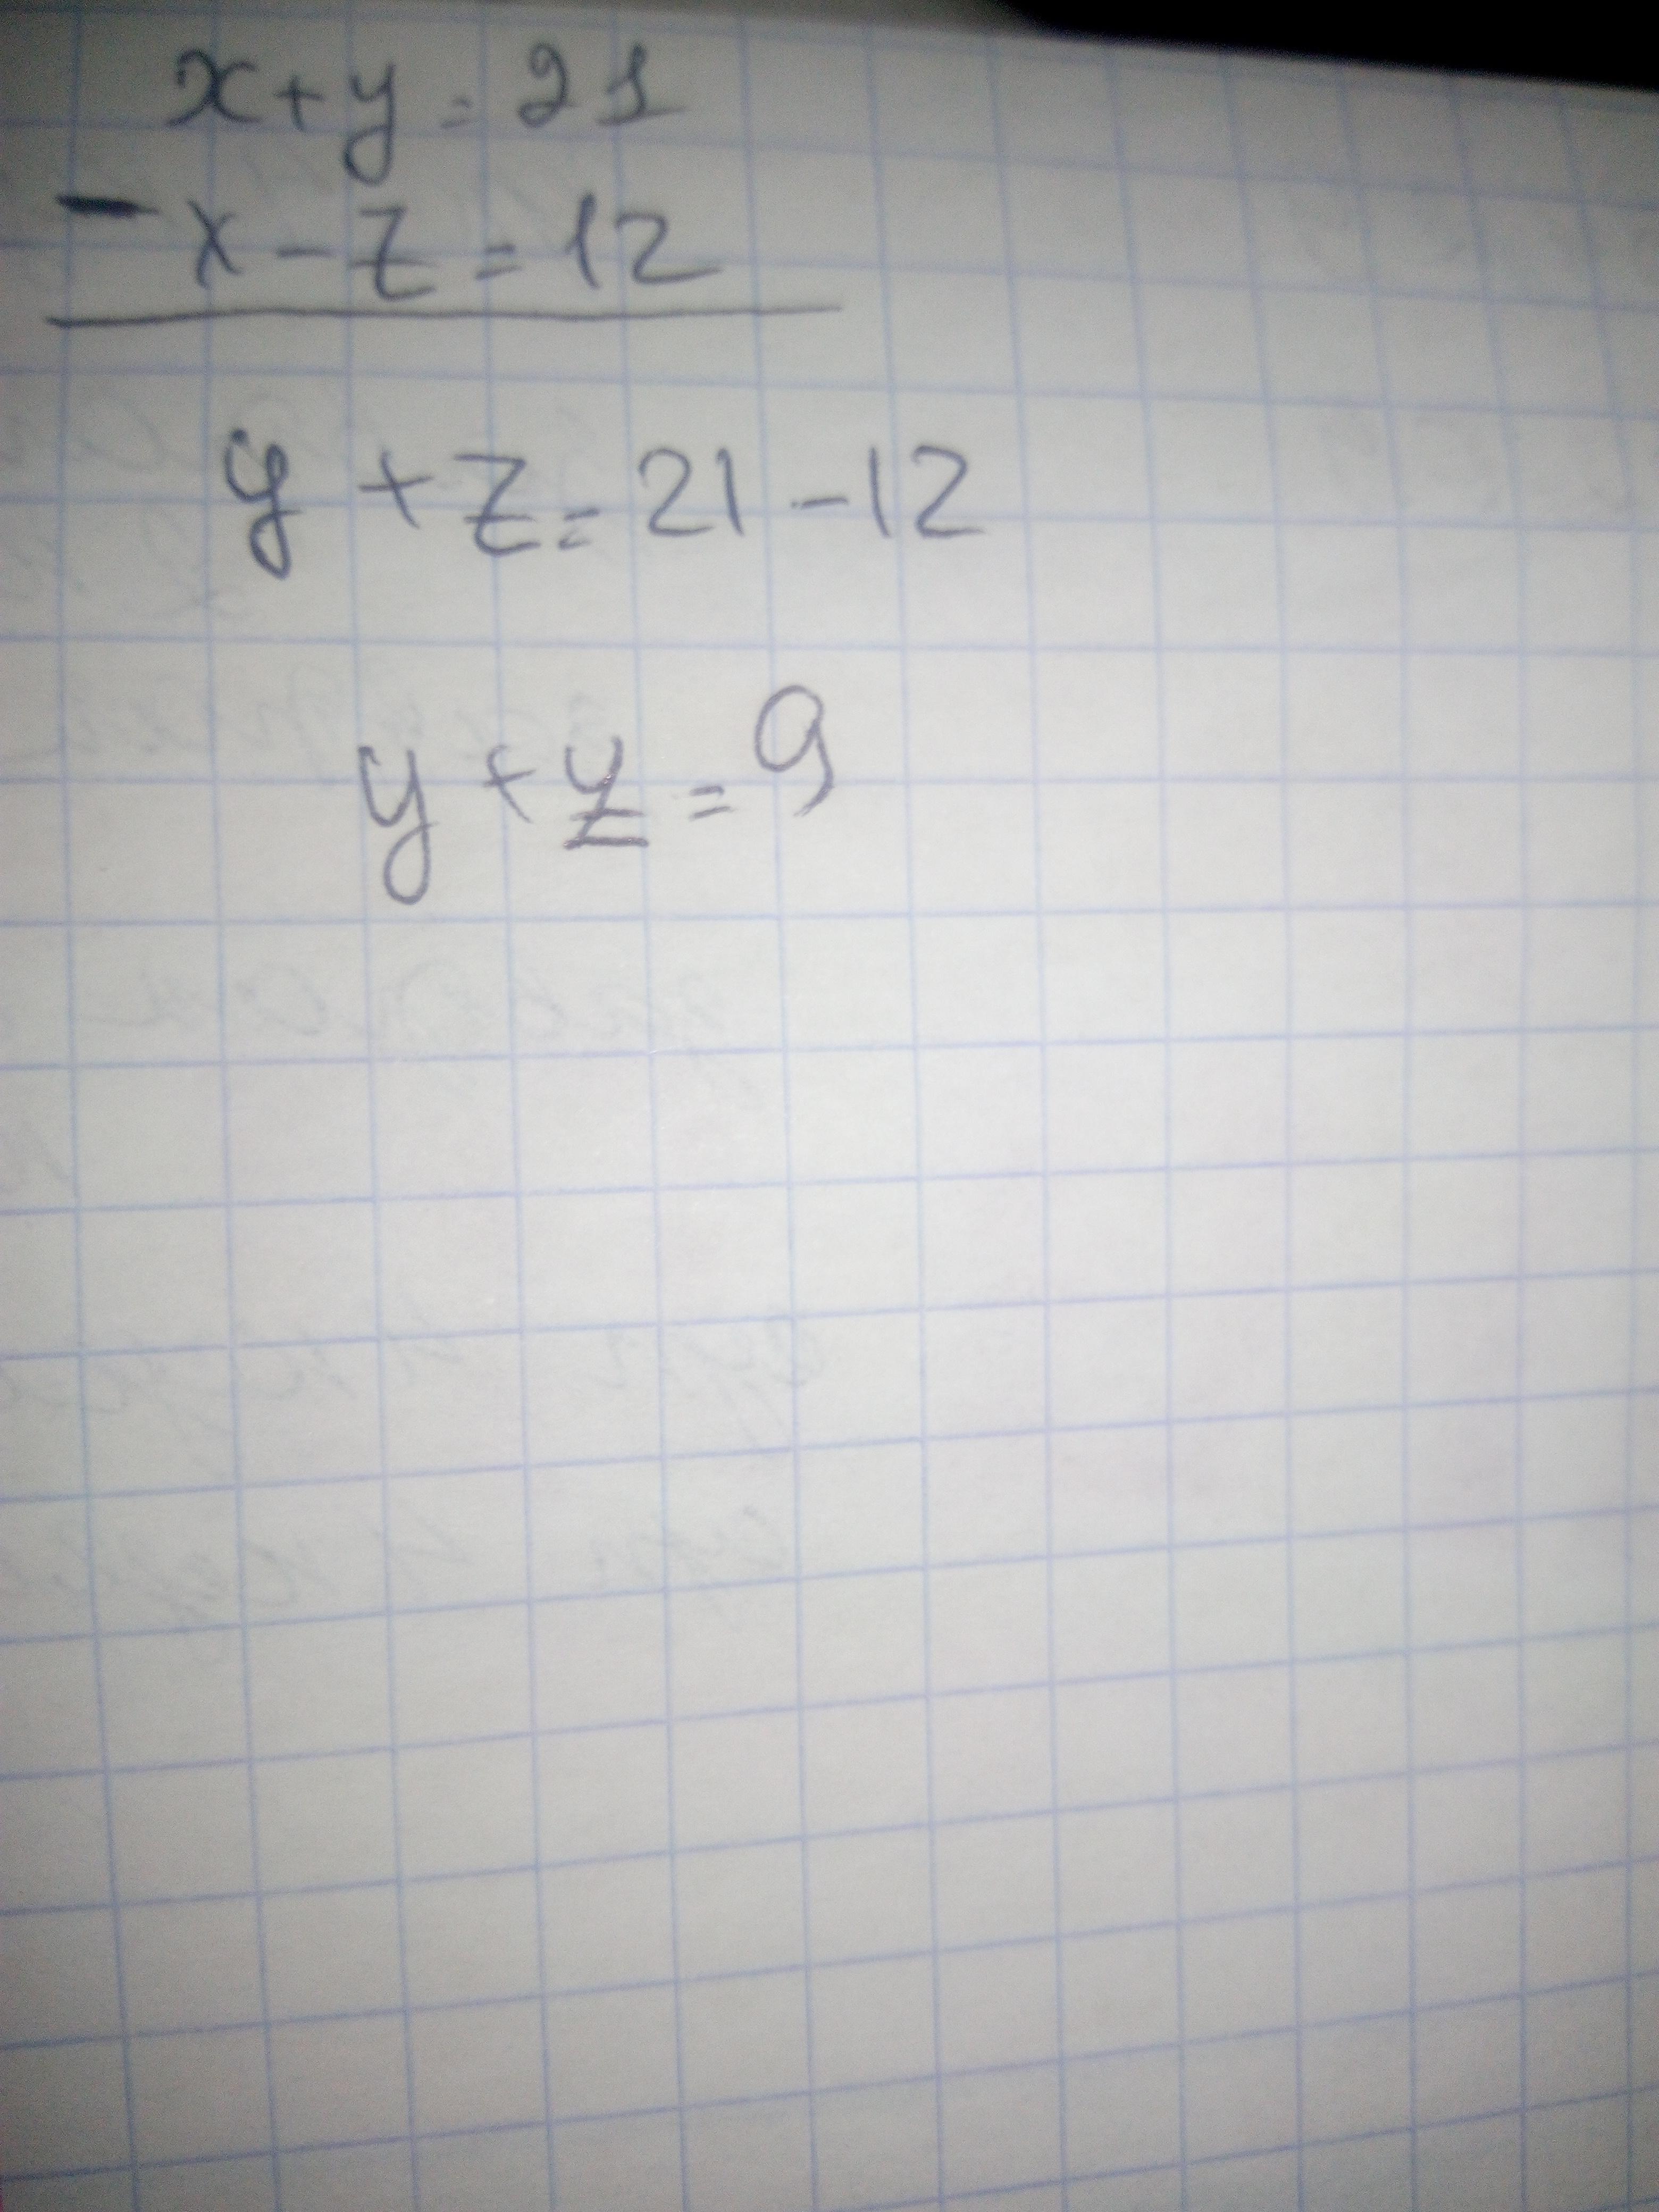 x+y=21
- x-z=12
y+z=21-12
y+z=9